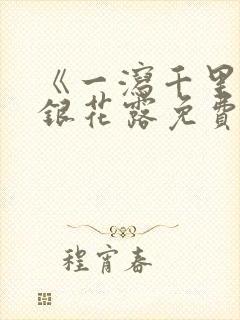 《一瀉千里
銀花露免費
程宵春